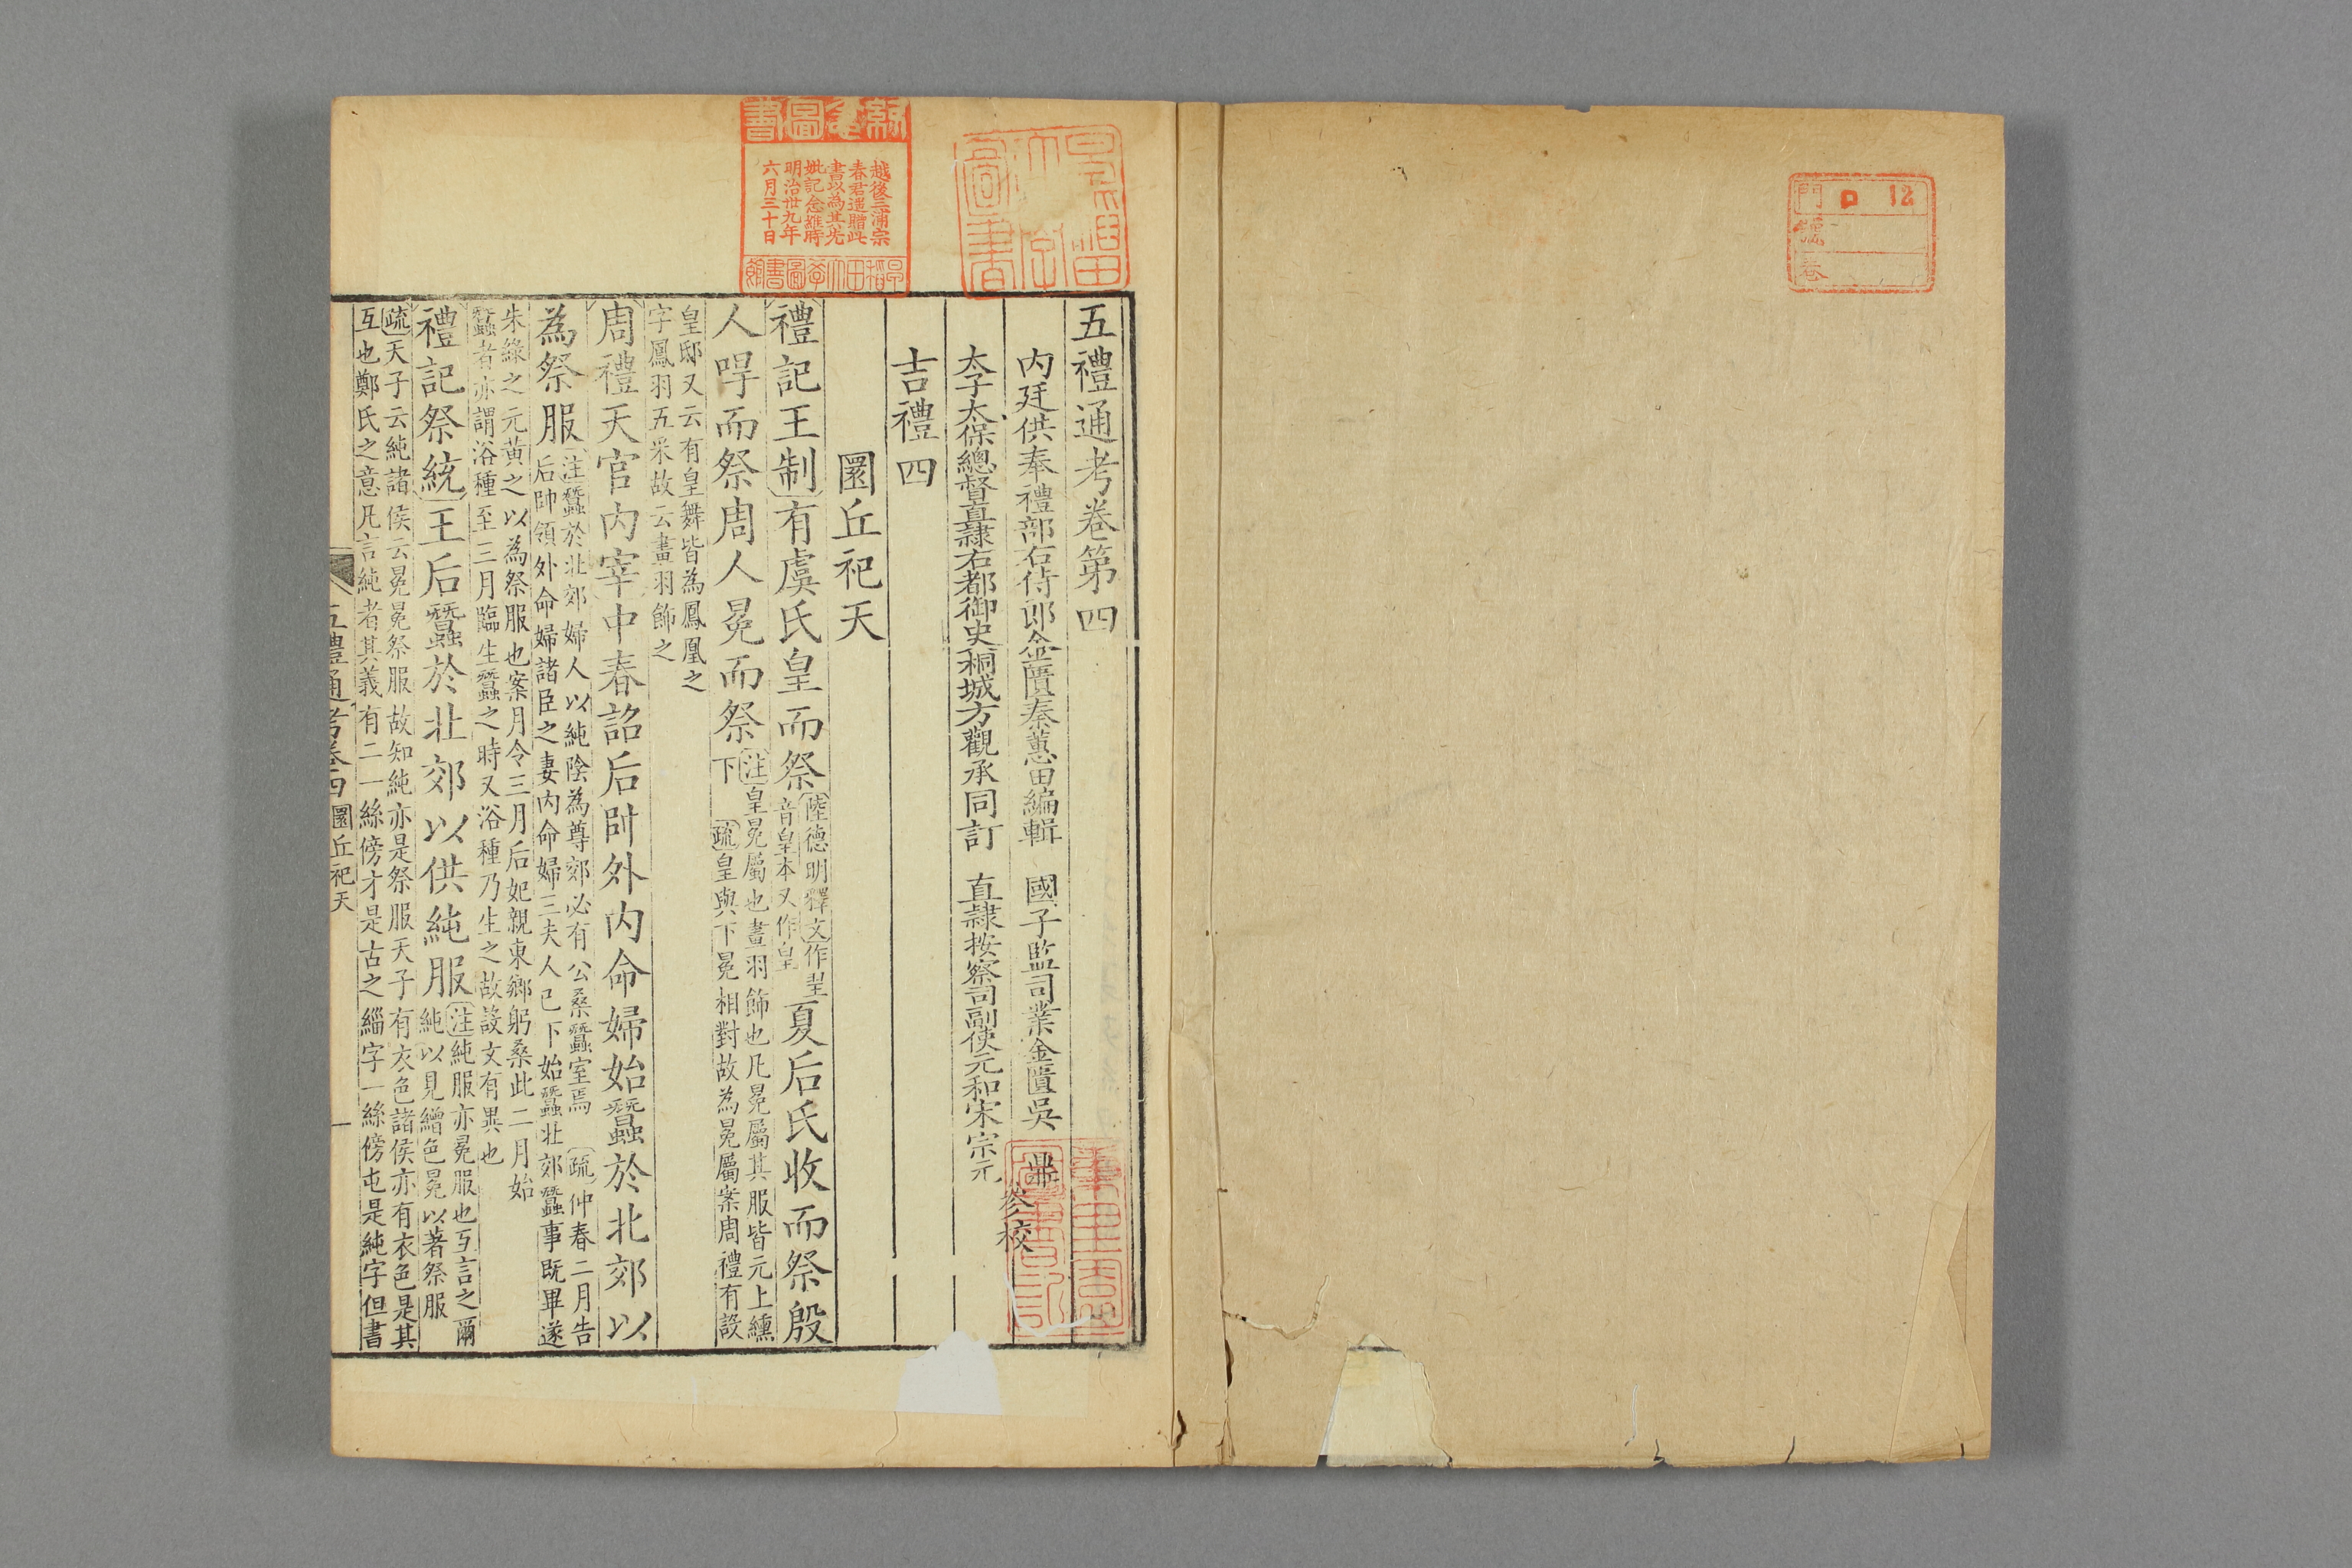 門 ロ 12
號
卷
五禮通考卷第四
内廷供奉禮部右侍郎金匱秦蕙田編輯 國子監司業金匱吳鼎
參校
太子太保總督直隸右都御史桐城方觀承同訂 直隸按察司副使元和宋宗元
吉禮四
圜丘祀天
禮記王制有虞氏皇而祭
陸德明釋文作𦐧
音皇本又作皇
夏后氏收而祭殷
人冔而祭周人冕而祭
注皇冕屬也畫羽飾也凡冕屬其服皆元上纁
下 疏皇與下冕相對故為冕屬案周禮有設
皇邸又云有皇舞皆為鳳凰之
字鳳羽五采故云畫羽飾之
周禮天官内宰中春詔后帥外内命婦始蠶於北郊以
為祭服
注蠶於北郊婦人以純陰為尊郊必有公桑蠶室焉 疏仲春二月告
后帥領外命婦諸臣之妻内命婦三夫人已下始蠶北郊蠶事既畢遂
朱綠之元黃之以為祭服也案月令三月后妃親東鄉躬桑此二月始
蠶者亦謂浴種至三月臨生蠶之時又浴種乃生之故設文有異也
禮記祭統王后蠶於北郊以供純服
注純服亦冕服也互言之爾
純以見繒色冕以著祭服
疏天子云純諸侯云冕冕祭服故知純亦是祭服天子有衣色諸侯亦有衣色是其
互也鄭氏之意凡言純者其義有二一絲傍才是古之緇字一絲傍屯是純字但書
五禮通考卷四 圜丘祀天 一
早稻田大學圖書
紀念圖書
越後三浦宗
春君遥贈此
書以為其先
妣記念維時
明治卅九年
六月三十日
早稻田大學圖書館